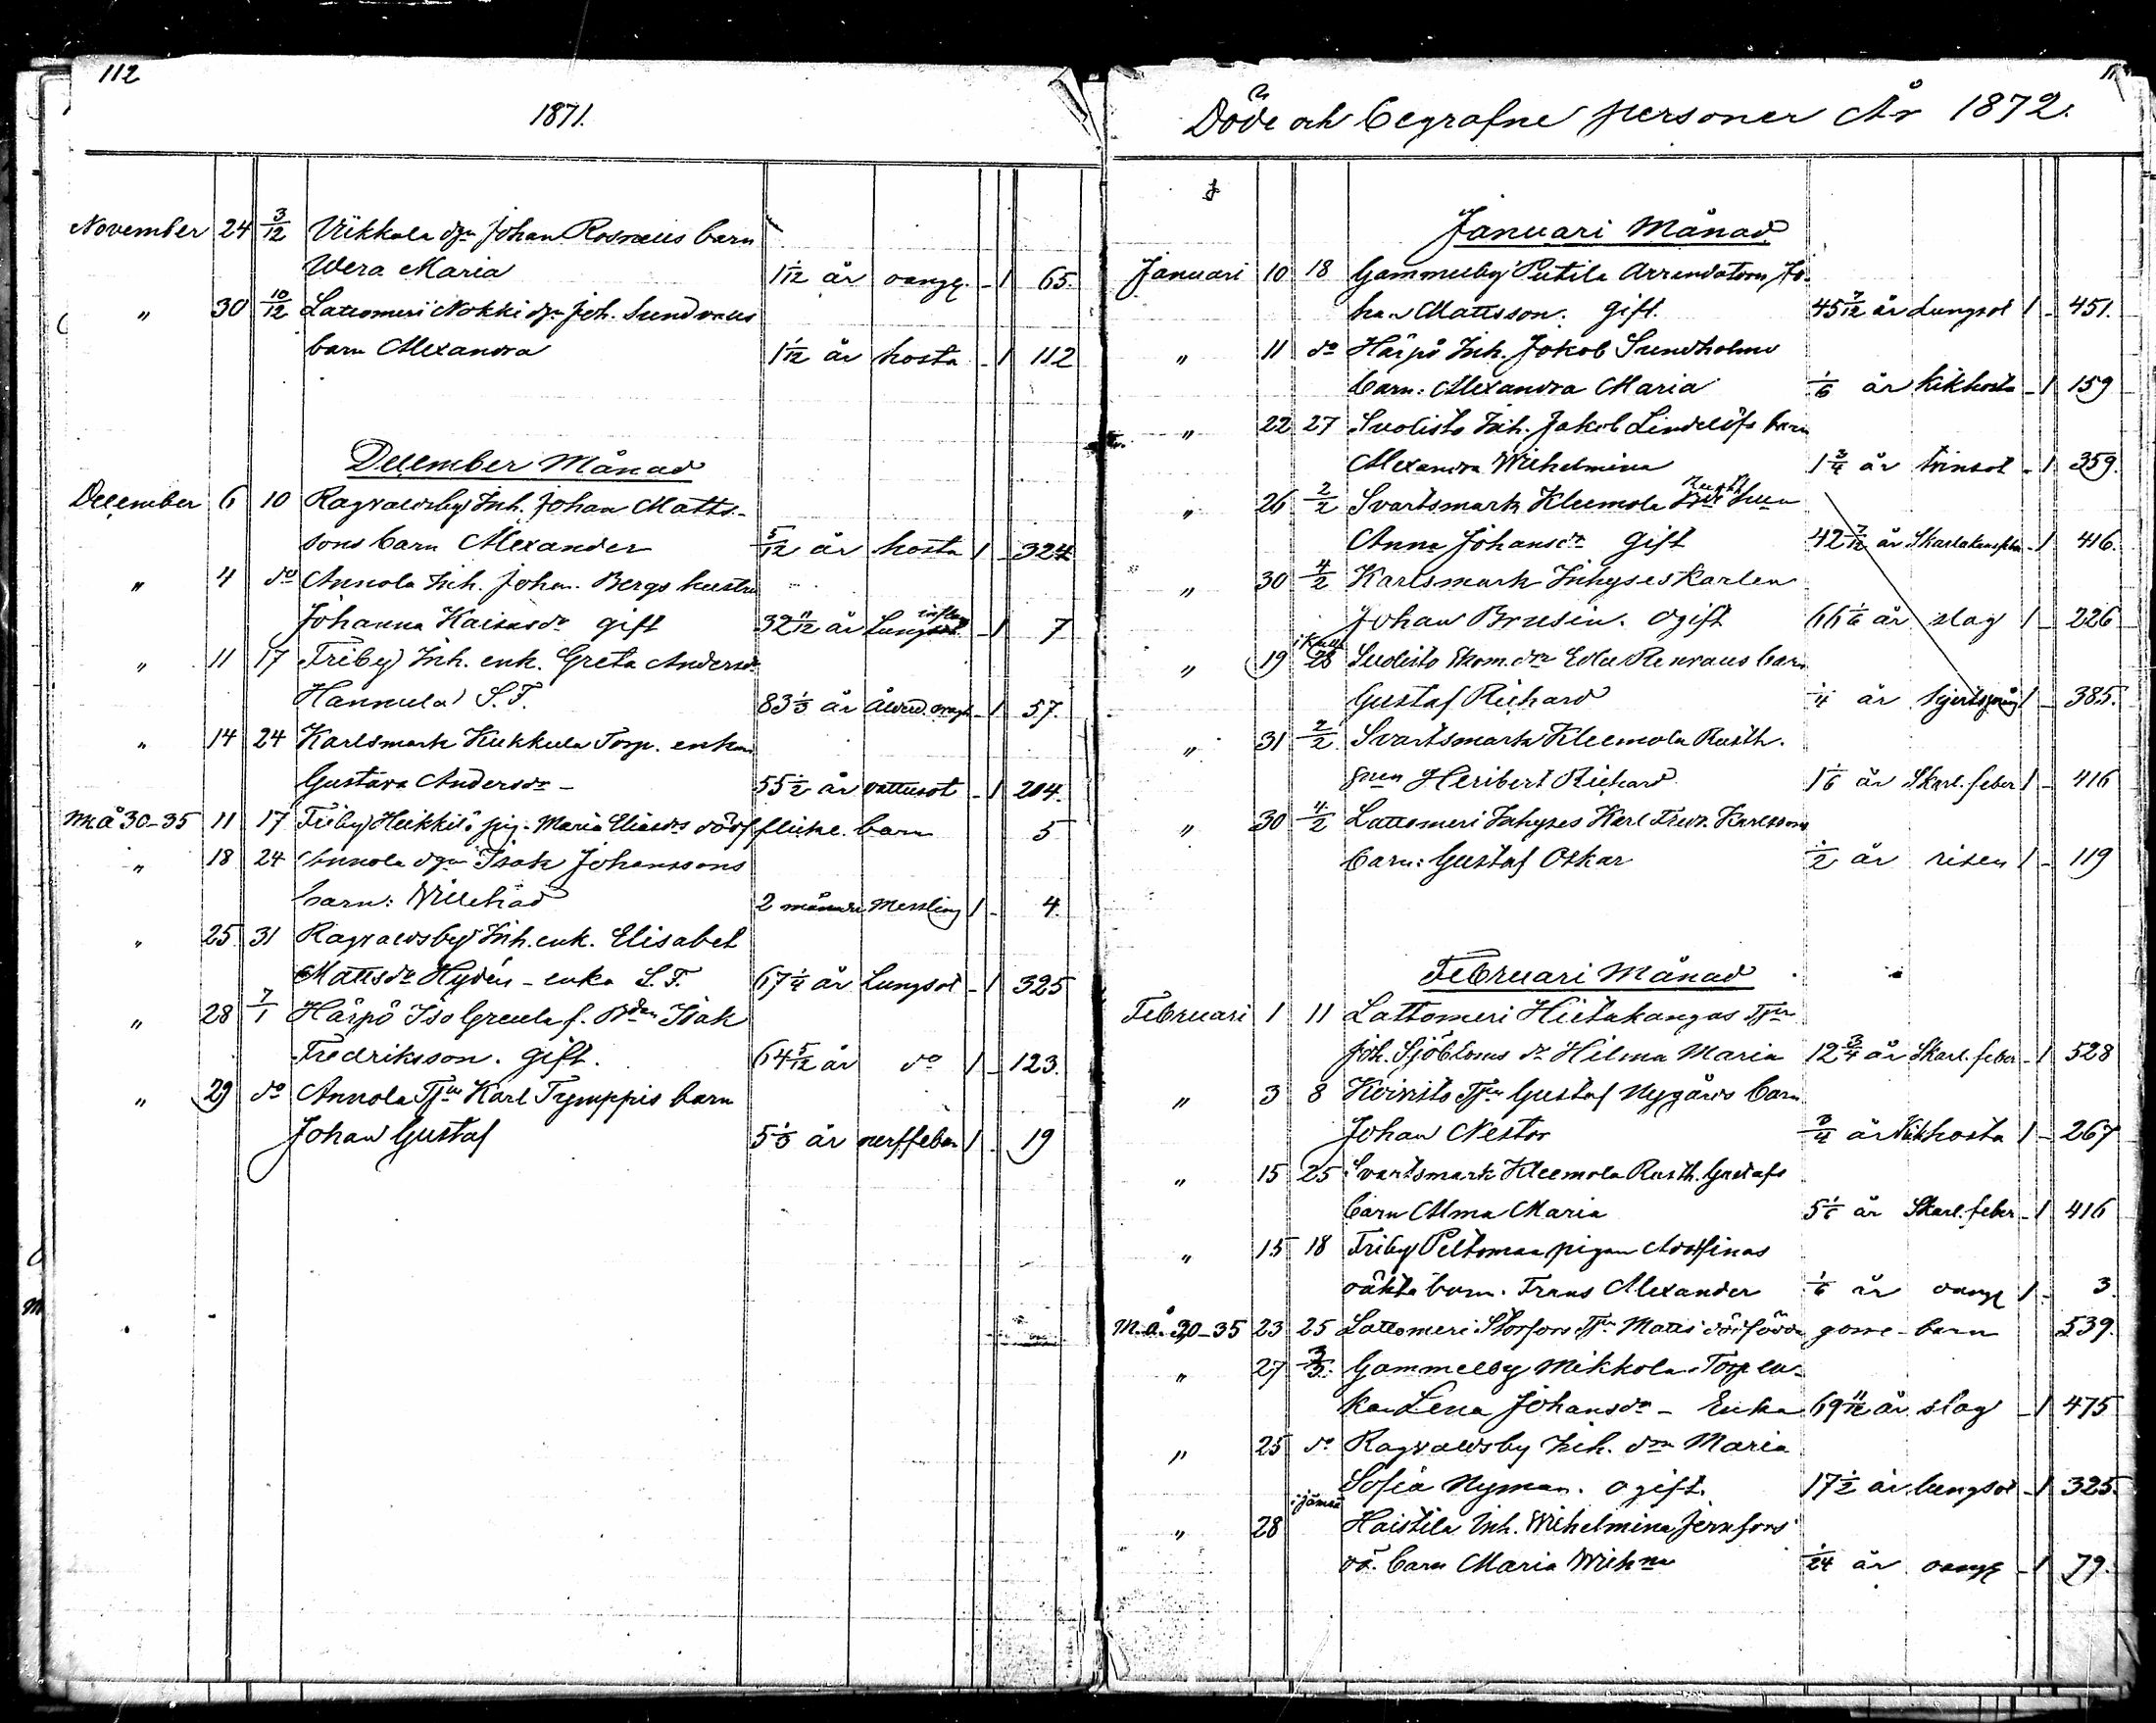 112
1871.
November 24 3/12 Viikkala dgn Johan Rosnells barn
Wera Maria 1 1/12 år oangg. - 1 65.
" 30 10/12 Lattomeri Nokki dgn Joh. Sundvalls
barn Alexandra 1 1/12 år hosta - 1 112
December Månad
December 6 10 Ragvaldsby Inh. Johan Matts-
sons barn Alexander 5/12 år hosta 1 - 324
" 4 do Annola Inh. Johan Bergs hustru
Johanna Kaisasdr gift 32 11/12 år Lung - 1 7
" 11 17 Friby Inh. enk. Greta Andersdr
Hannula S.F. 83 1/3 år - 1 57.
" 14 24 Karlsmark Kukkula Torp. enkan
Gustava Andersdr - 55 1/2 år vattusot - 1 204.
M å 30-35 11 17 Friby Heikkilä pig. Maria Eliaedr dödf flickebarn 5
" 18 24 Annola dgn Isak Johanssons
barn: Willehad 2 månader Messling 1 - 4.
" 25 31 Ragvaldsby Inh. enk. Elisabet
Mattsdr Hydén - enka S.F. 67 1/4 år Lungsot - 1 325
" 28 7/1 Härpö Iso Greula f. Bden Isak
Fredriksson. gift. 64 5/12 år do 1 - 123.
" 29 do Annola Tjn Karl Trymppis barn
Johan Gustaf 5 1/3 år nerffeber 1 - 19
Döde och begrafne personer År 1872.
Januari Månad
Januari 10 18 Gammelby Peitila Arrendatorn Jo-
han Mattsson. gift. 45 7/12 år Lungsot 1 - 451.
" 11 do Härpö Inh. Jakob Sundholms
barn: Alexandra Maria 1/6 år kikhosta - 1 159
" 22 27 Suolisto Inh. Jakob Lindelöfs barn
Alexandra Wilhelmina 1 3/4 år tvinsot - 1 359.
" 26 2/2 Svartsmark Kleemola Rusth
Anna Johansdr gift 42 7/12 år Skarlakansfeber - 1 416.
" 30 4/2 Karlsmark Inhyseskarlen
Johan Brusin. ogift 66 1/6 år slag 1 - 226
" 19 28 Suolisto Ekom. dr Edla Renvalls barn
Gustaf Richard 1/4 år 1 - 385.
" 31 2/2 Svartsmark Kleemola Rusth.
Heribert Richard 1 1/6 år Skarl. feber 1 - 416
" 30 4/2 Lattomeri Inhyses Karl Fredr. Karlssons
barn: Gustaf Oskar 1/2 år risen 1 - 119
Februari Månad
Februari 1 11 Lattomeri Hietakangas Tjn
Joh. Sjöbloms dr Hilma Maria 12 3/4 år Skarl. feber - 1 528
" 3 8 Koivisto Tjn Gustaf Nygårds barn
Johan Nestor 3/4 år Kikhosta 1 - 267
" 15 25 Svartsmark Kleemola Rusth. Gustafs
barn Alma Maria 5 1/6 år Skarl. feber - 1 416
" 15 18 Friby Peltomaa pigan Adolfinas
oäkta barn. Frans Alexander 1/6 år oangg 1 - 3
M.å. 30-35 23 25 Lattomeri Storfors Tjn Matts dödfödde gosse-barn 539.
" 27 3/3 Gammelby Mikkola Torp en-
kan Lena Johansdr - Enka 69 11/12 år slag - 1 475
" 25 do Ragvaldsby Inh. dr Maria
Sofia Nyman. ogift. 17 1/2 år lungsot - 1 325
" 28 Haistila Inh. Wilhelmina Jernfors
oä. barn Maria Wilhna 1/24 år oangg - 1 79.